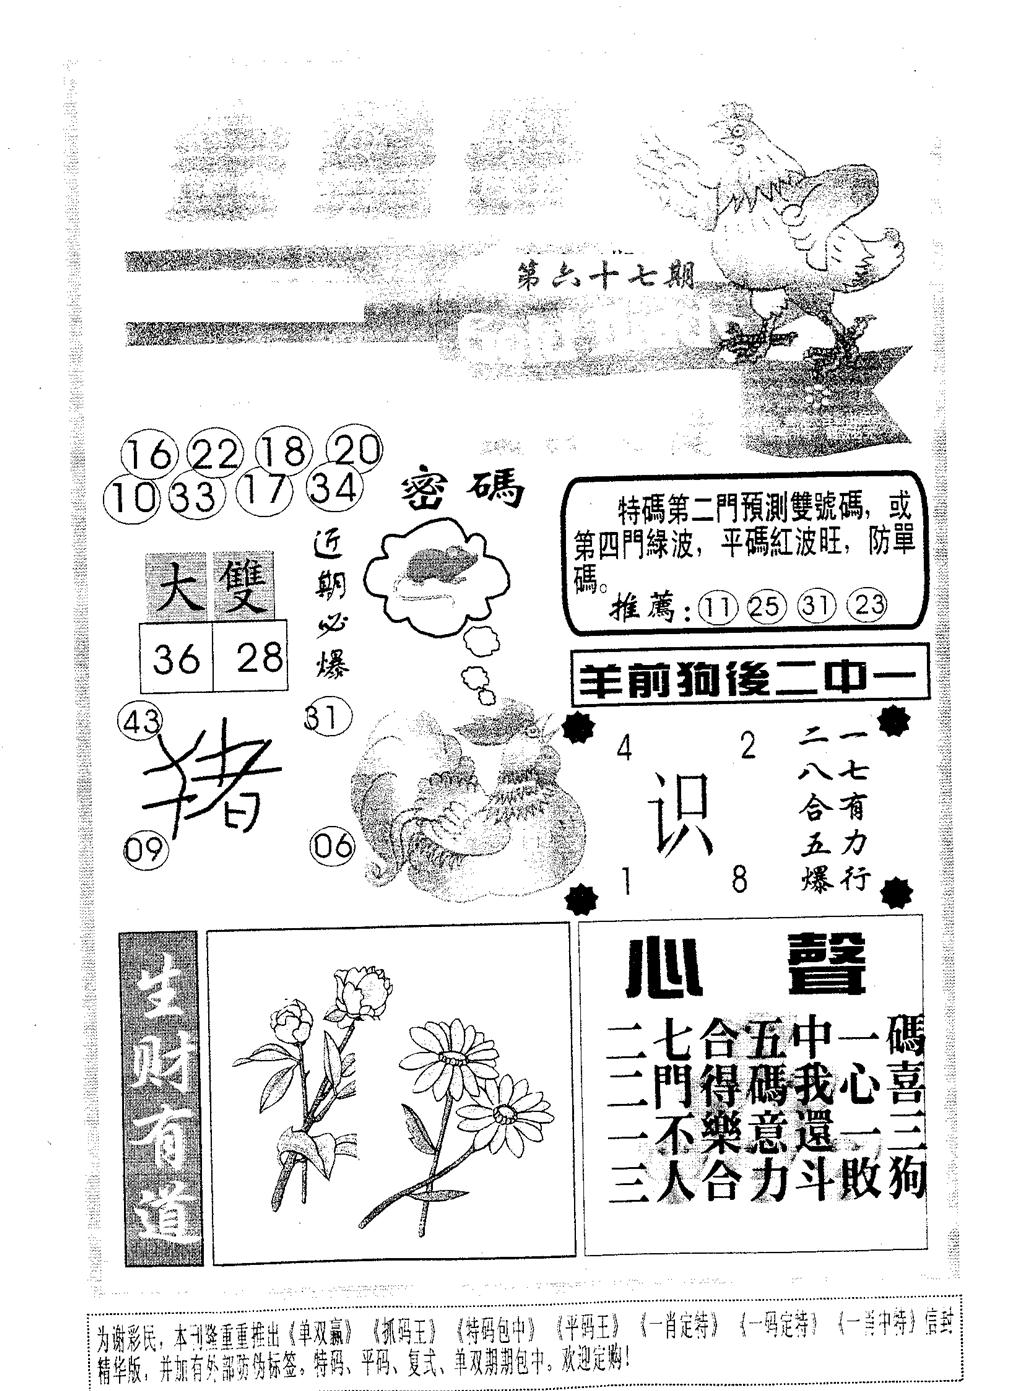 第六十七期
16 22 18 20
10 33 17 34
密碼
近期必爆
大 雙
36 28
特碼第二門預測雙號碼，或
第四門綠波，平碼紅波旺，防單
碼。
推薦：11 25 31 23
羊前狗後二中一
43 31
猪
09 06
4 2
识
1 8
一七有力行
二八合五爆
生财有道
心聲
二七合五中一碼
二門得碼我心喜
一不樂意還一三
三人合力斗敗狗
为谢彩民，本刊隆重重推出《单双赢》《抓码王》《特码包中》《平码王》《一肖定特》《一码定特》《一肖中特》信封
精华版，并加有外部防伪标签。特码、平码、复式、单双期期包中。欢迎定购！